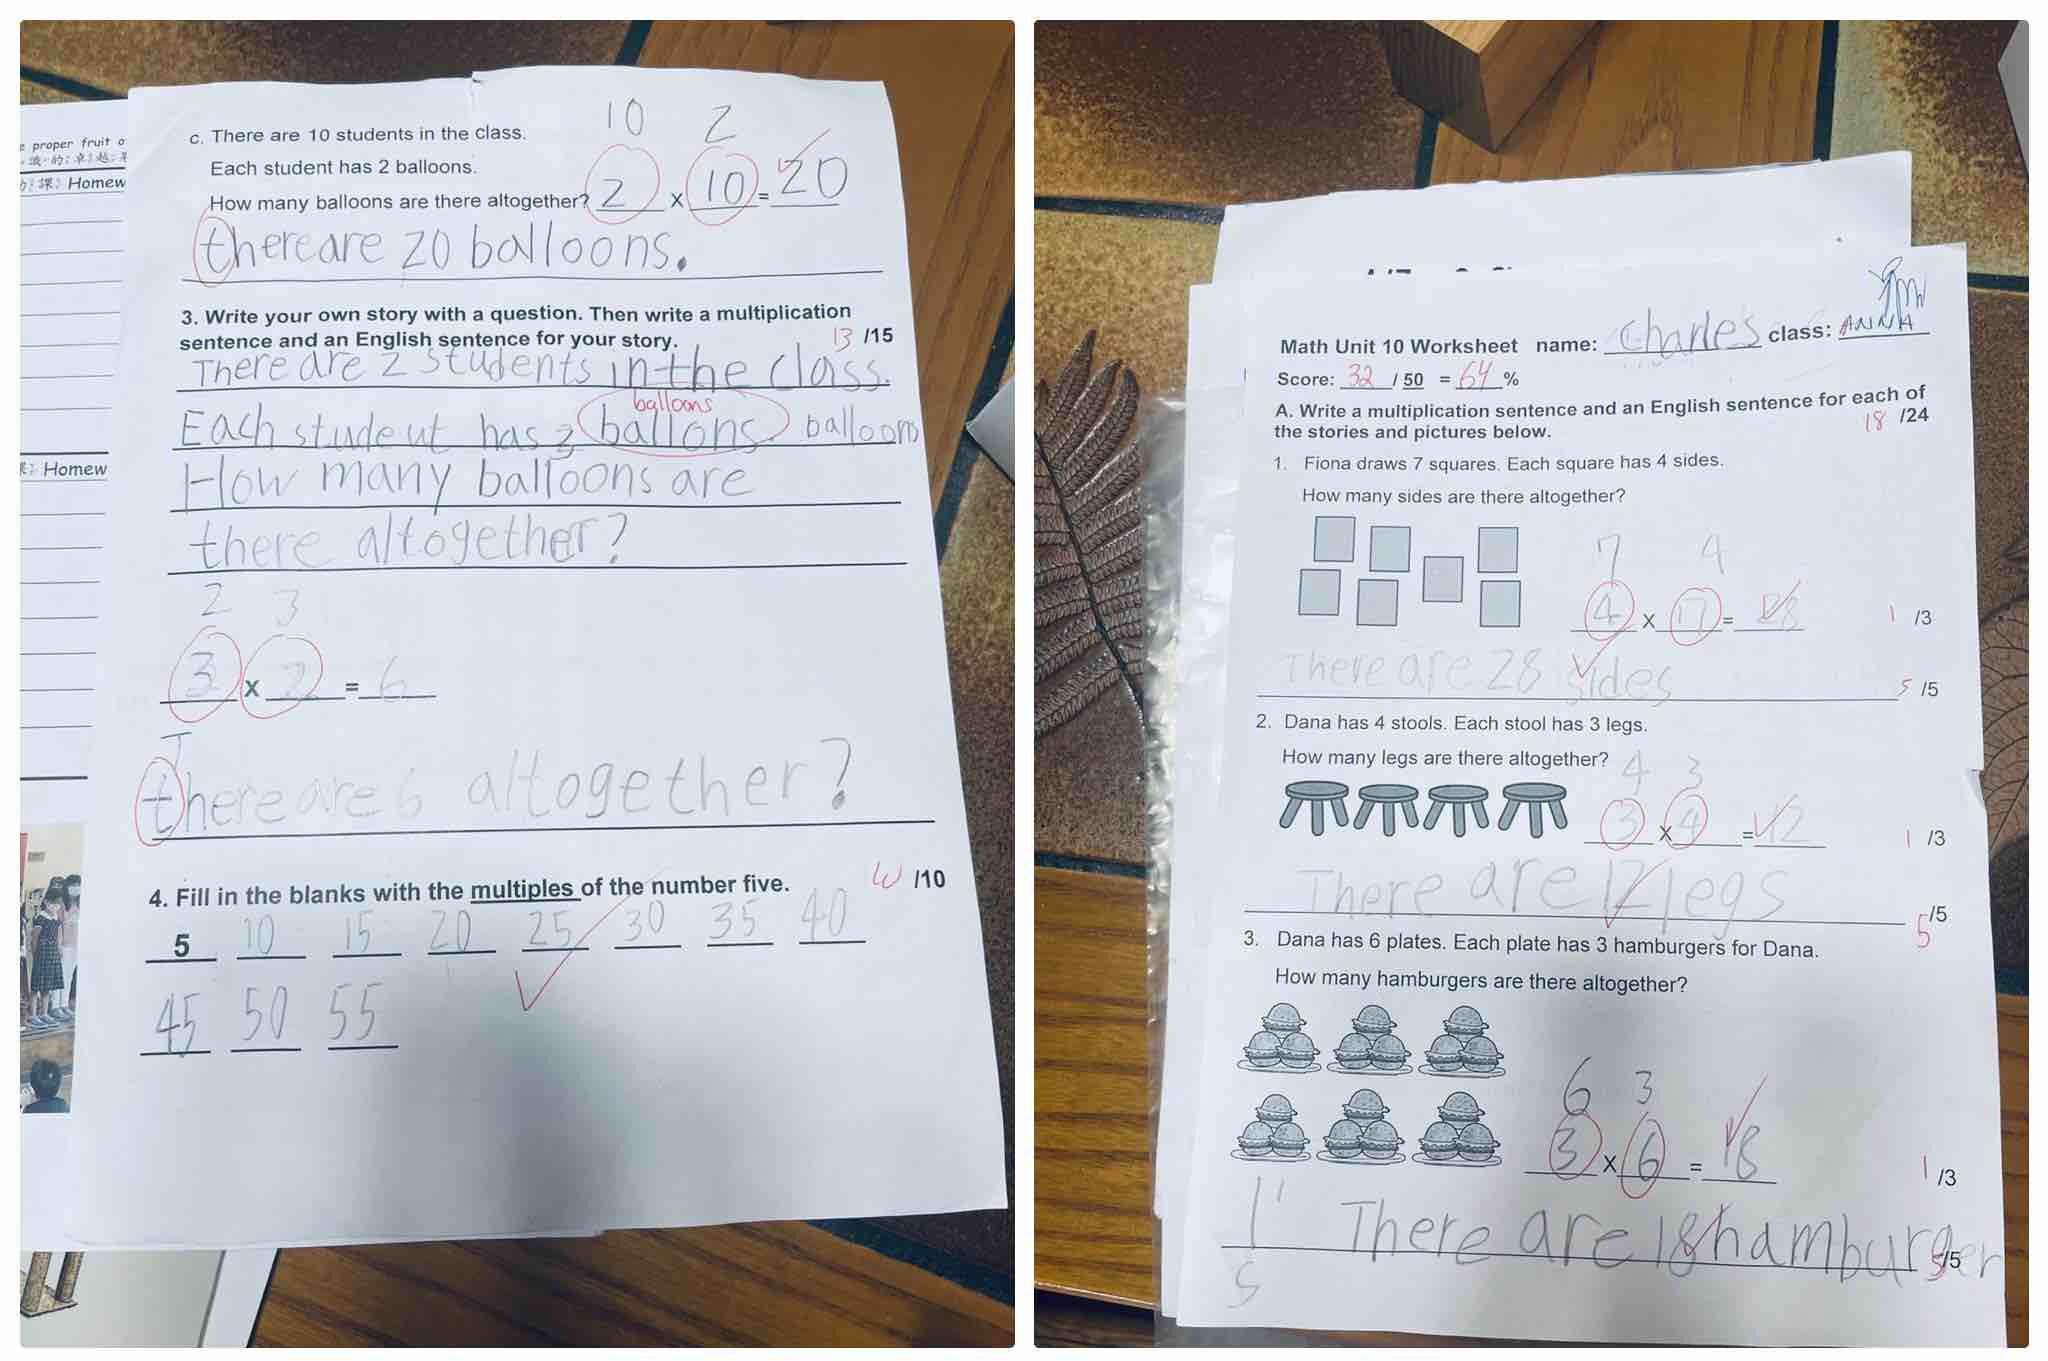 e proper fruit o
課 Homew
Homew
c. There are 10 students in the class.
10 2
Each student has 2 balloons.
How many balloons are there altogether? 2 x 10 = 20
there are 20 balloons.
3. Write your own story with a question. Then write a multiplication
sentence and an English sentence for your story. 13 /15
There are 2 students in the class.
balloons
Each student has 3 ballons. balloons
How many balloons are
there altogether?
2 3
3 x 2 = 6
T
there are 6 altogether?
4. Fill in the blanks with the multiples of the number five. /10
5 10 15 20 25 30 35 40
45 50 55
Math Unit 10 Worksheet name: Charles class: ANNA
Score: 32 / 50 = 64 %
A. Write a multiplication sentence and an English sentence for each of
the stories and pictures below. 18 /24
1. Fiona draws 7 squares. Each square has 4 sides.
How many sides are there altogether?
7 4
4 x 7 = 28 1 /3
There are 28 sides 5 /5
2. Dana has 4 stools. Each stool has 3 legs.
How many legs are there altogether?
4 3
3 x 4 = 12 1 /3
There are 12 legs 5 /5
3. Dana has 6 plates. Each plate has 3 hamburgers for Dana.
How many hamburgers are there altogether?
6 3
3 x 6 = 18 1 /3
There are 18 hamburger 5 /5
s